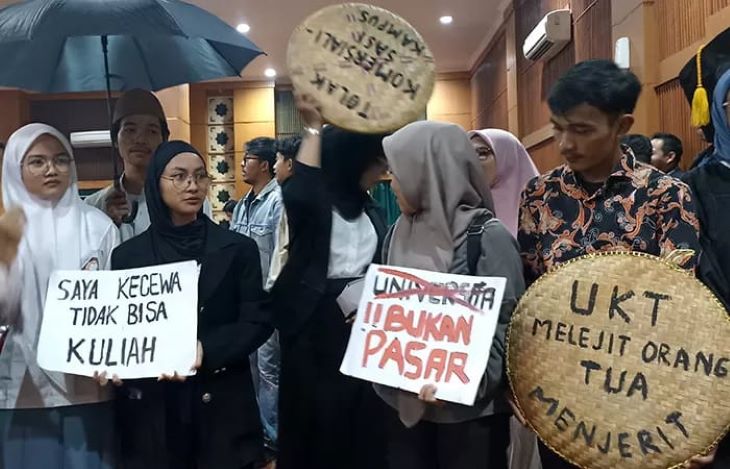 TOLAK
KOMERSIALI-
SASI
KAMPUS
SAYA KECEWA
TIDAK BISA
KULIAH
UNIVERSITA
!! BUKAN
PASAR
UKT
MELEJIT ORANG
TUA
MENJERIT